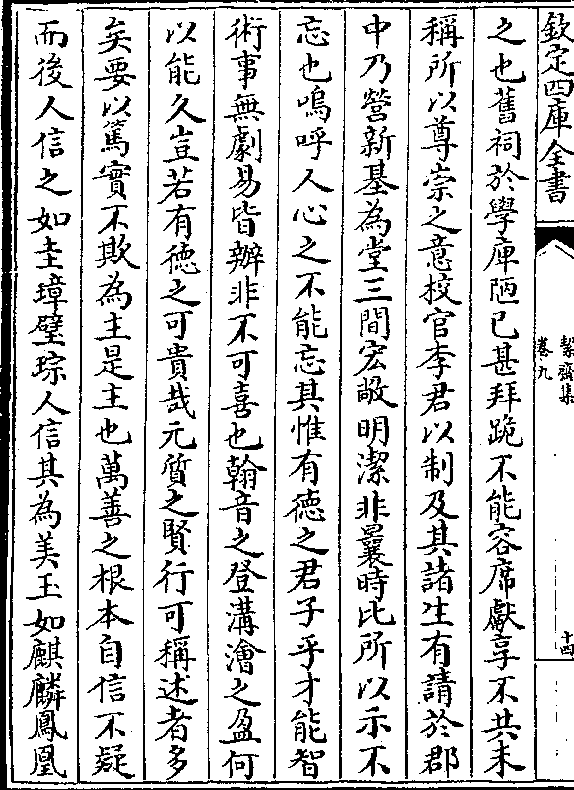 欽定四庫全書
絜齋集
卷九
十四
之也舊祠於學庫陋已甚拜跪不能容席獻享不共未
稱所以尊崇之意校官李君以制及其諸生有請於郡
中乃營新基為堂三間宏敞明潔非曩時比所以示不
忘也嗚呼人心之不能忘其惟有德之君子乎才能智
術事無劇易皆辦非不可喜也翰音之登溝澮之盈何
以能久豈若有德之可貴哉元質之賢行可稱述者多
矣要以篤實不欺為主是主也萬善之根本自信不疑
而後人信之如圭璋璧琮人信其為美玉如麒麟鳳凰